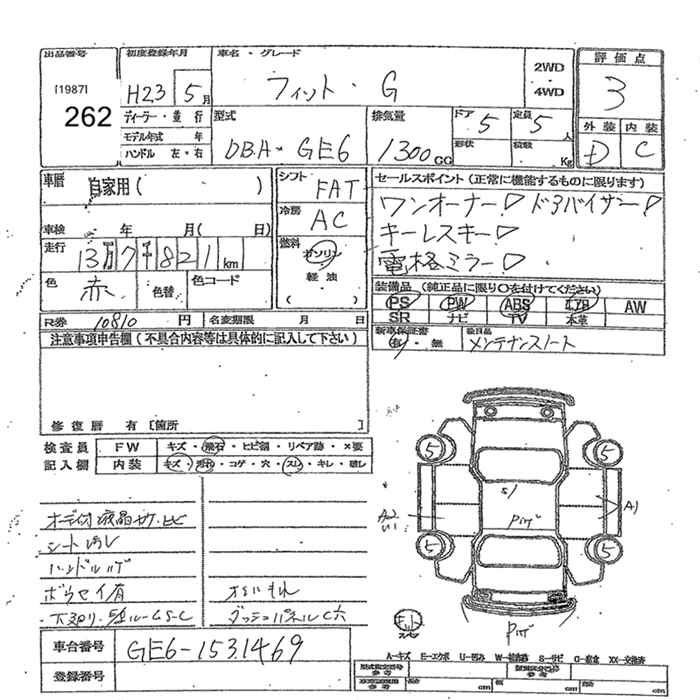 出品番号
初度登録年月
車名・グレード
2WD
・
4WD
評価点
[1987]
262
H23 5月
フィット・G
3
ディーラー・並行
モデル年式 年
ハンドル 左・右
型式
DBA-GE6
排気量
1300CC
ドア 5
定員 5人
形状
積載 Kg
外装 内装
D C
車暦
自家用( )
シフト
FAT
セールスポイント(正常に機能するものに限ります)
冷房
AC
ワンオーナー! ドアバイザー!
キーレスキー!
電格ミラー!
車検 年 月( 日)
走行
13万7千821km
燃料
ガソリン
軽油
( )
色
赤
色替
色コード
装備品(純正品に限り○を付けてください)
PS PW ABS エアB AW
SR ナビ TV 本革
R券 10810円
名変期限 月 日
新車保証書
有・無
後日品
メンテナンスノート
注意事項申告欄(不具合内容等は具体的に記入して下さい)
修復歴 有[箇所 ]
検査員
記入欄
FW
キズ・飛石・ヒビ割・リペア跡・×要
内装
キズ・汚れ・コゲ・穴・スレ・キレ・破レ
シート汚レ
ハンドルハゲ
ボウセイ有
オイルもれ
ダッシュパネルC穴
5 5
S1
A1
5 5
車台番号
GE6-1531469
登録番号
A=キズ E=エクボ U=凹み W=補修跡 S=サビ C=腐食 XX=交換済
型式指定番号
参考
類別区分番号
参考
cm cm cm